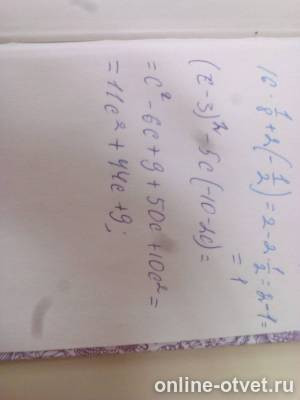 16 · 1/8 + 2(-1/2) = 2 - 2 · 1/2 = 2 - 1 =
= 1
(c - 3)² - 5c(-10 - 2c) =
= c² - 6c + 9 + 50c + 10c² =
= 11c² + 44c + 9;
online-otvet.ru